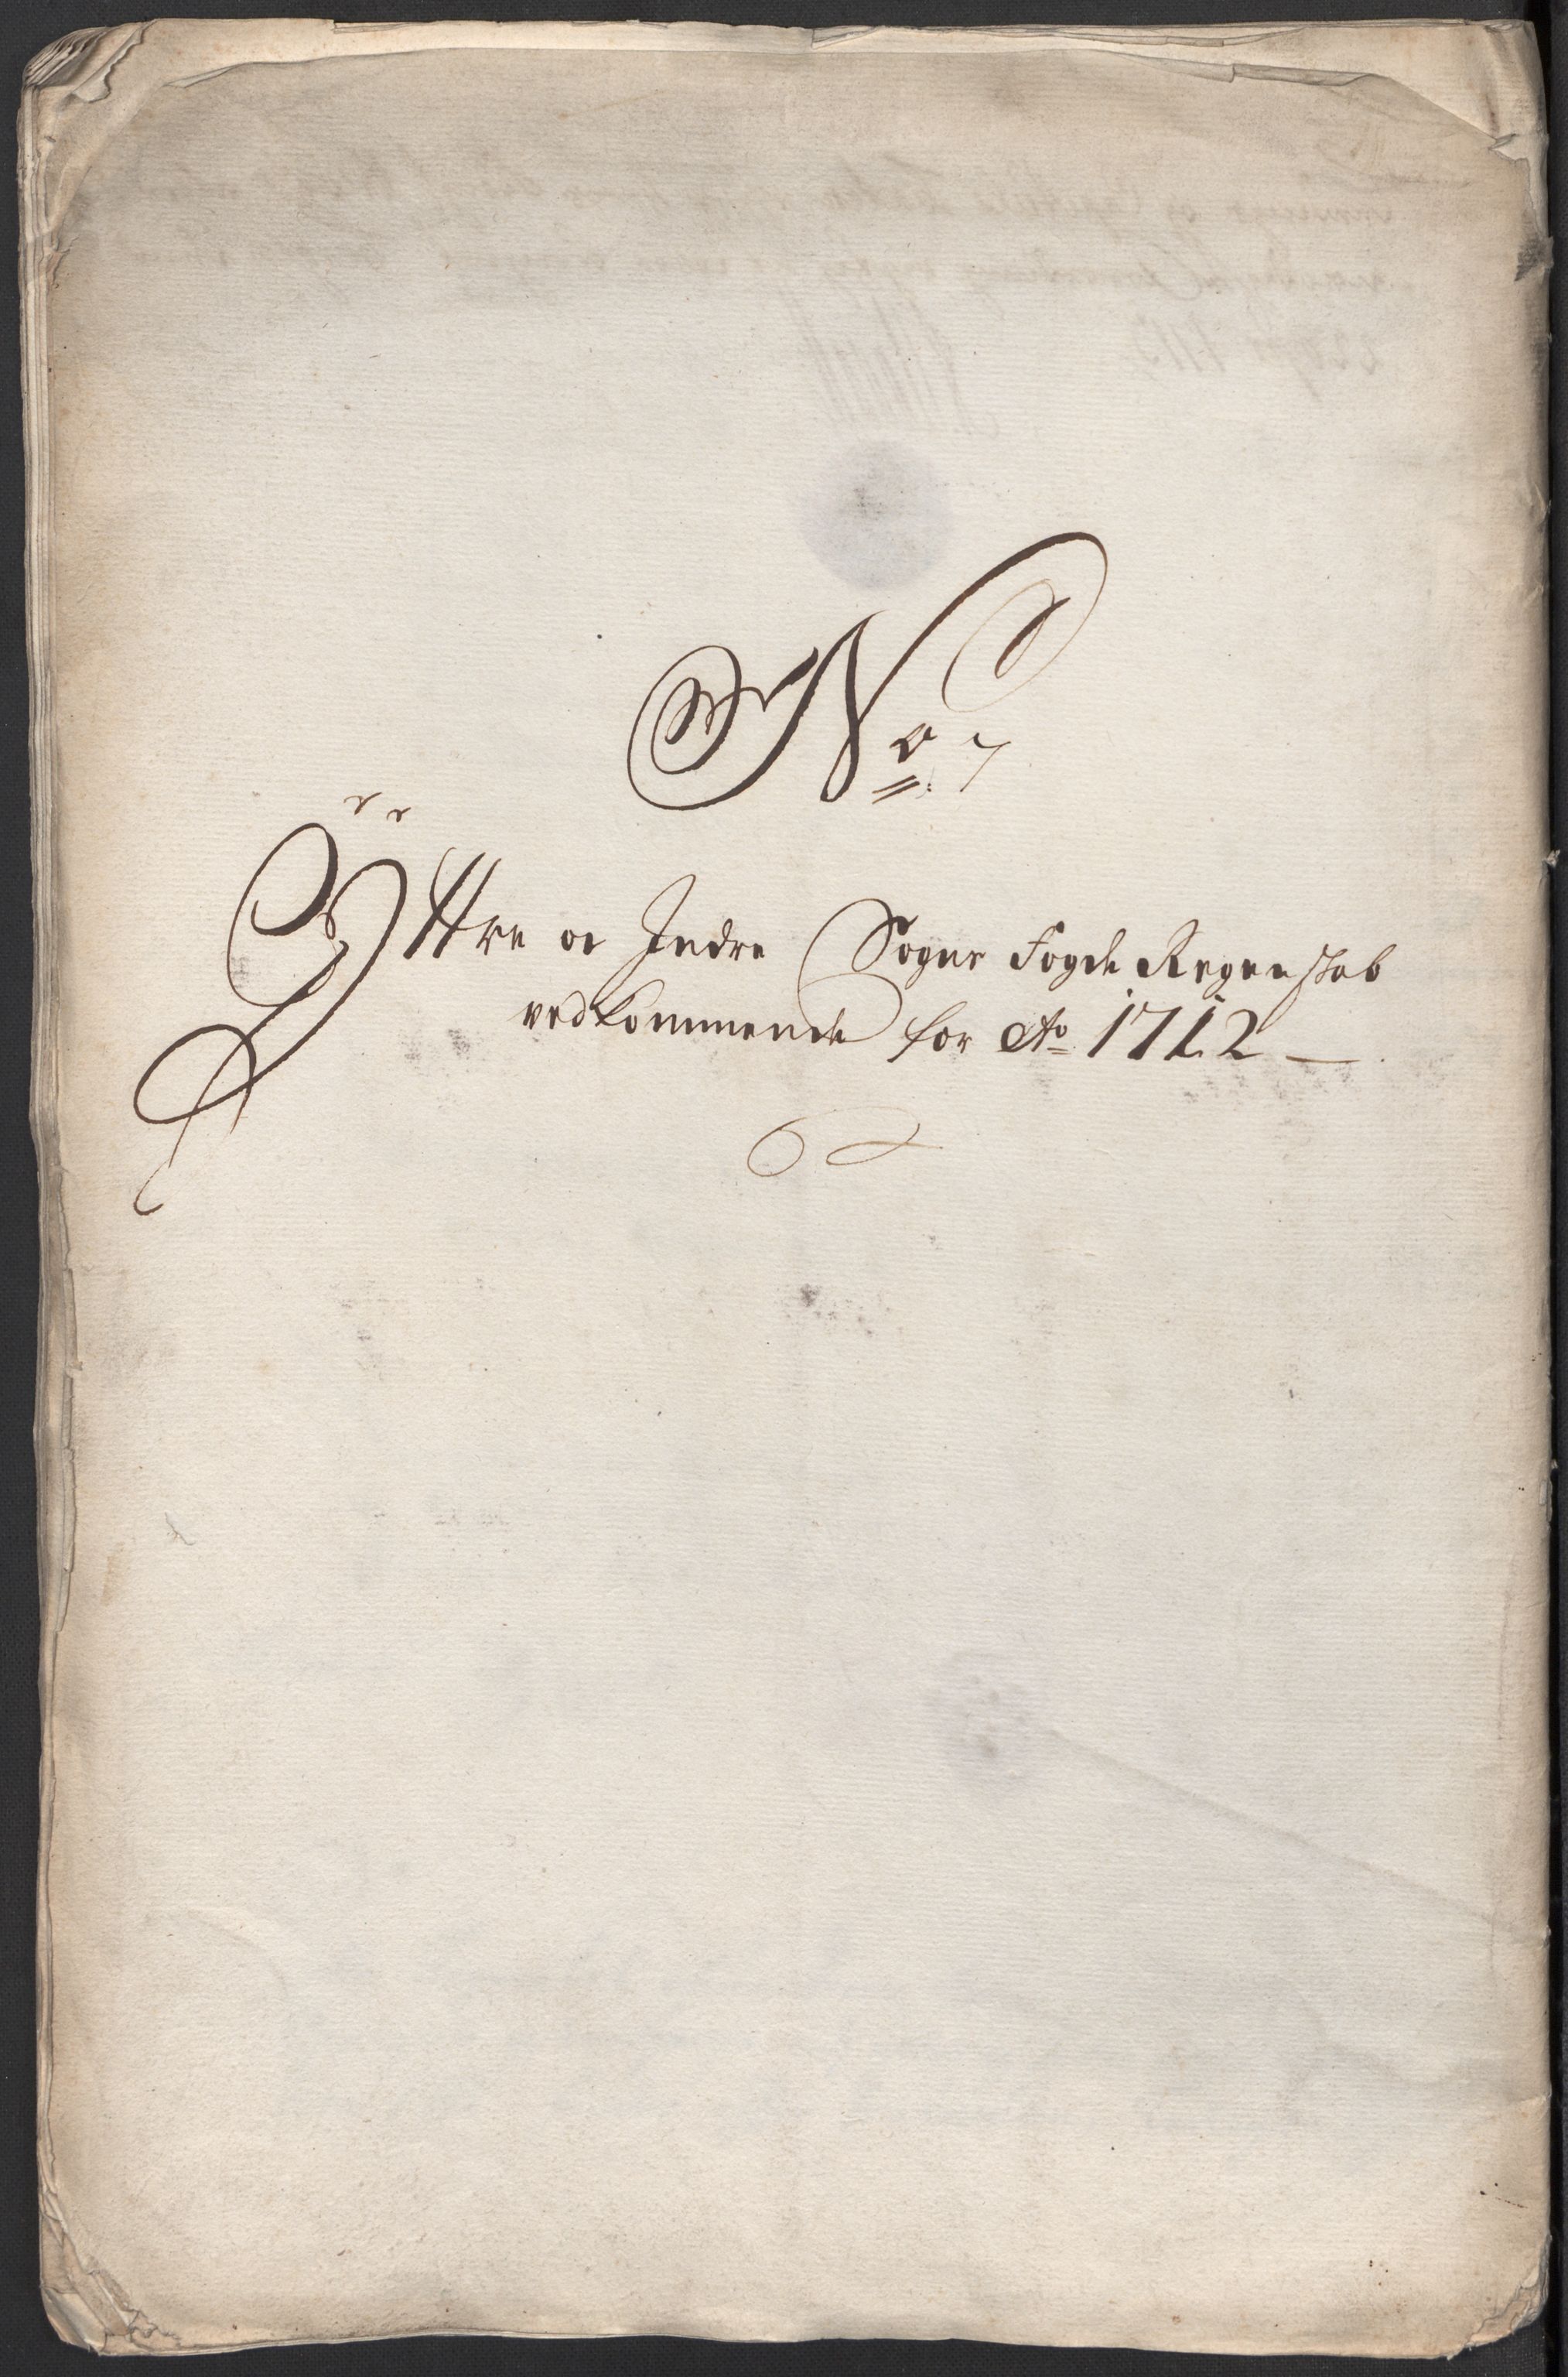 No 7
Ÿttre oc Indre Sogns Fogde Regenskab
vedkommende for Ao 1712